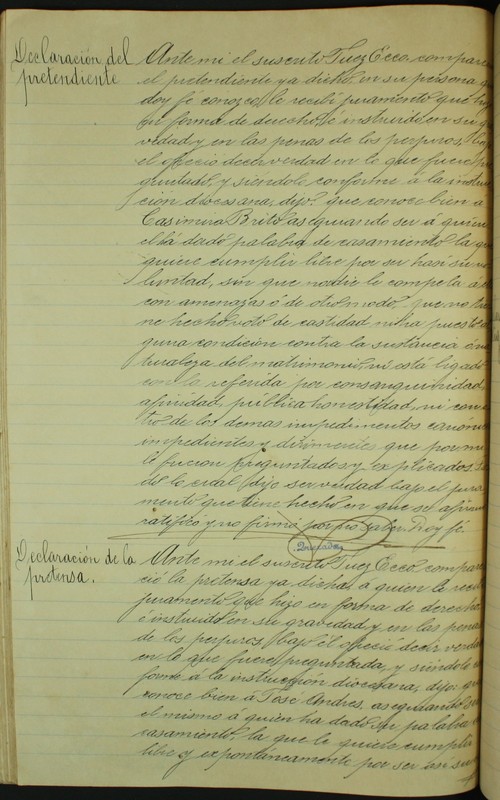 Declaración del
pretendiente
Ante mi el suscrito Juez Ecco. compare
el pretendiente ya dicho, en su persona q
doy fé conozco, le recibí juramento que hi
en forma de derecho, é instruido en su
vedad, y en las penas de los perjuros, baj
el ofreció decir verdad en lo que fuere
guntado, y siéndole conforme á la instru
ción diocesana, dijo: que conoce bien á
Casimira Brito, asegurando ser á quien
el há dado palabra de casamiento, la q
quiere cumplir libre por ser hasi su vo
luntad, sin que nadie le compela á
con amenazas ó de otro modo, que no ti
ne hecho voto de castidad ni ha puesto
guna condición contra la sustancia é na
turaleza del matrimonio, ni está ligado
con la referida por consanguinidad,
afinidad, pública honestidad, ni con
tro de los demas impedimentos canóni
impedientes y dirimentes que por me
le fueron preguntados y explicados.
do lo cual dijo ser verdad bajo el jura
mento que tiene hecho en que se afirm
ratificó y no firmó por no saber. Doy fé.
Declaración de la
pretensa.
Ante mi el suscrito Juez Ecco. compare
ció la pretensa ya dicha, a quien le recibí
juramento que hizo en forma de derecho
é instruida en su gravedad y en las penas
de los perjuros, bajo él ofreció decir verdad
en lo que fuere preguntada, y siéndole
forme á la instrucción diocesana, dijo: que
conoce bien á José Andres, asegurando
el mismo á quien ha dado su palabra
casamiento, la que le quiere cumplir
libre y expontáneamente por ser asi su